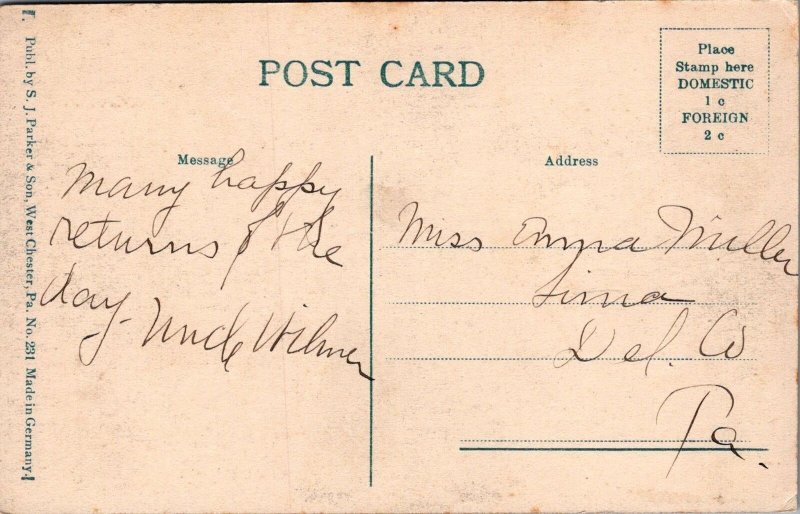 POST CARD
Place
Stamp here
DOMESTIC
1 c
FOREIGN
2 c
Message
Address
Many happy
returns of the
day. Uncle Wilmer
Miss Anna Miller
Lima
Del. Co
Pa.
Publ. by S. J. Parker & Son, West Chester, Pa. No. 231 Made in Germany.